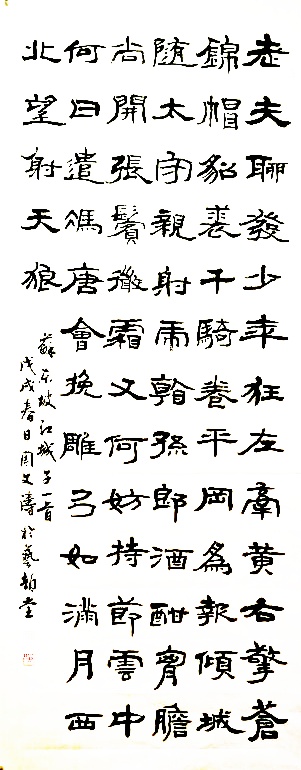 老夫聊發少年狂左牽黃右擎蒼
錦帽貂裘千騎卷平岡為報傾城
随太守親射虎看孫郎酒酣胸膽
尚開張鬢微霜又何妨持節雲中
何日遣馮唐會挽雕弓如滿月西
北望射天狼
蘇東坡江城子一首
戊戌春日周文濤於藝韵堂